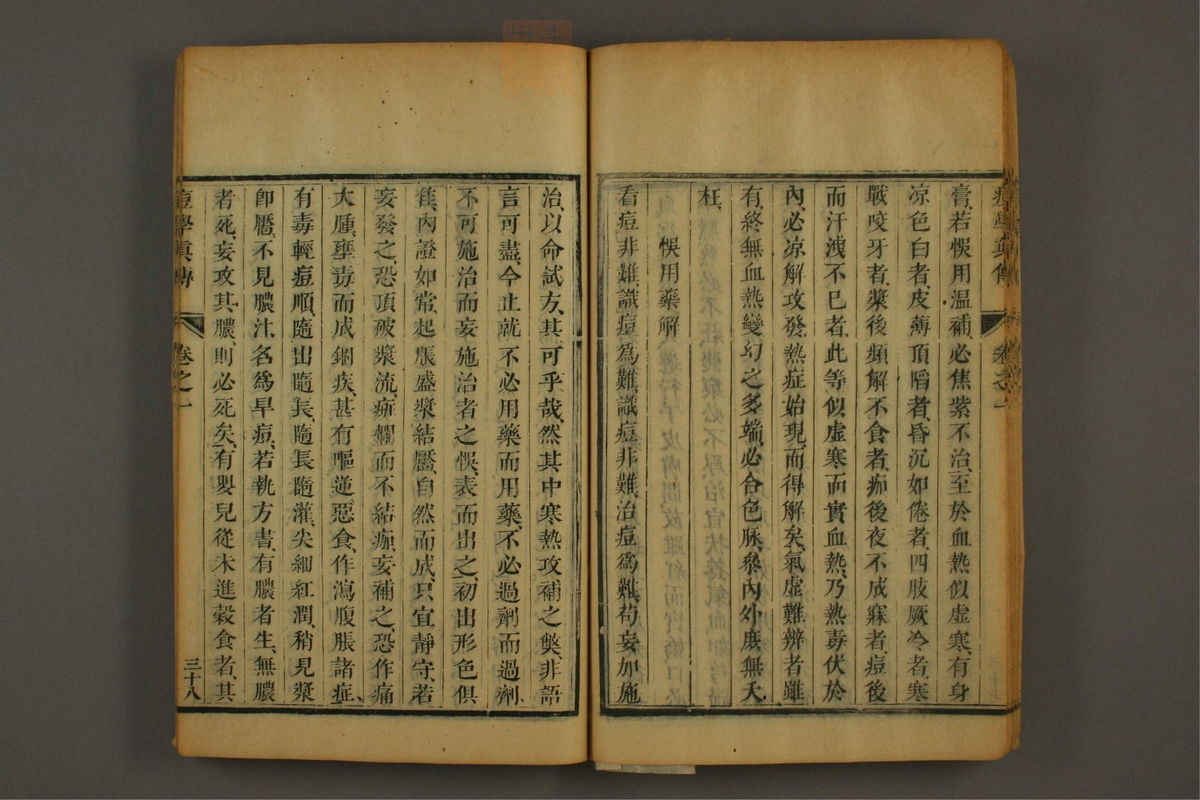 膏若悞用温補必焦紫不治至於血熱似虚寒有身
凉色白者皮薄頂䧟者昏沉如倦者四肢厥冷者寒
戰咬牙者漿後頻解不食者痂後夜不成寐者痘後
而汗洩不已者此等似虚寒而實血熱乃熱毒伏於
內必凉解攻發熱症始現而得解矣氣虚難辨者雖
有終無血熱變幻之多端必合色脉叅內外庻無夭
枉
悞用藥解
看痘非難識痘爲難識痘非難治痘爲難苟妄加施
治以命試方其可乎哉然其中寒熱攻補之獘非語
言可盡今止就不必用藥而用藥不必過劑而過劑
不可施治而妄施治者之悞表而出之初出形色俱
佳內證如常起脹盛漿結靨自然而成只宜靜守若
妄發之恐頂破漿流痂爛而不結痂妄補之恐作痛
大腫壅毒而成錮疾甚有嘔逆惡食作瀉腹脹諸症
有毒輕痘順隨出隨長隨長隨灌尖細紅潤稍見漿
卽靨不見膿汁名爲旱痘若執方書有膿者生無膿
者死妄攻其膿則必死矣有嬰兒從未進穀食者其
痘學眞傳
卷之一
三十八